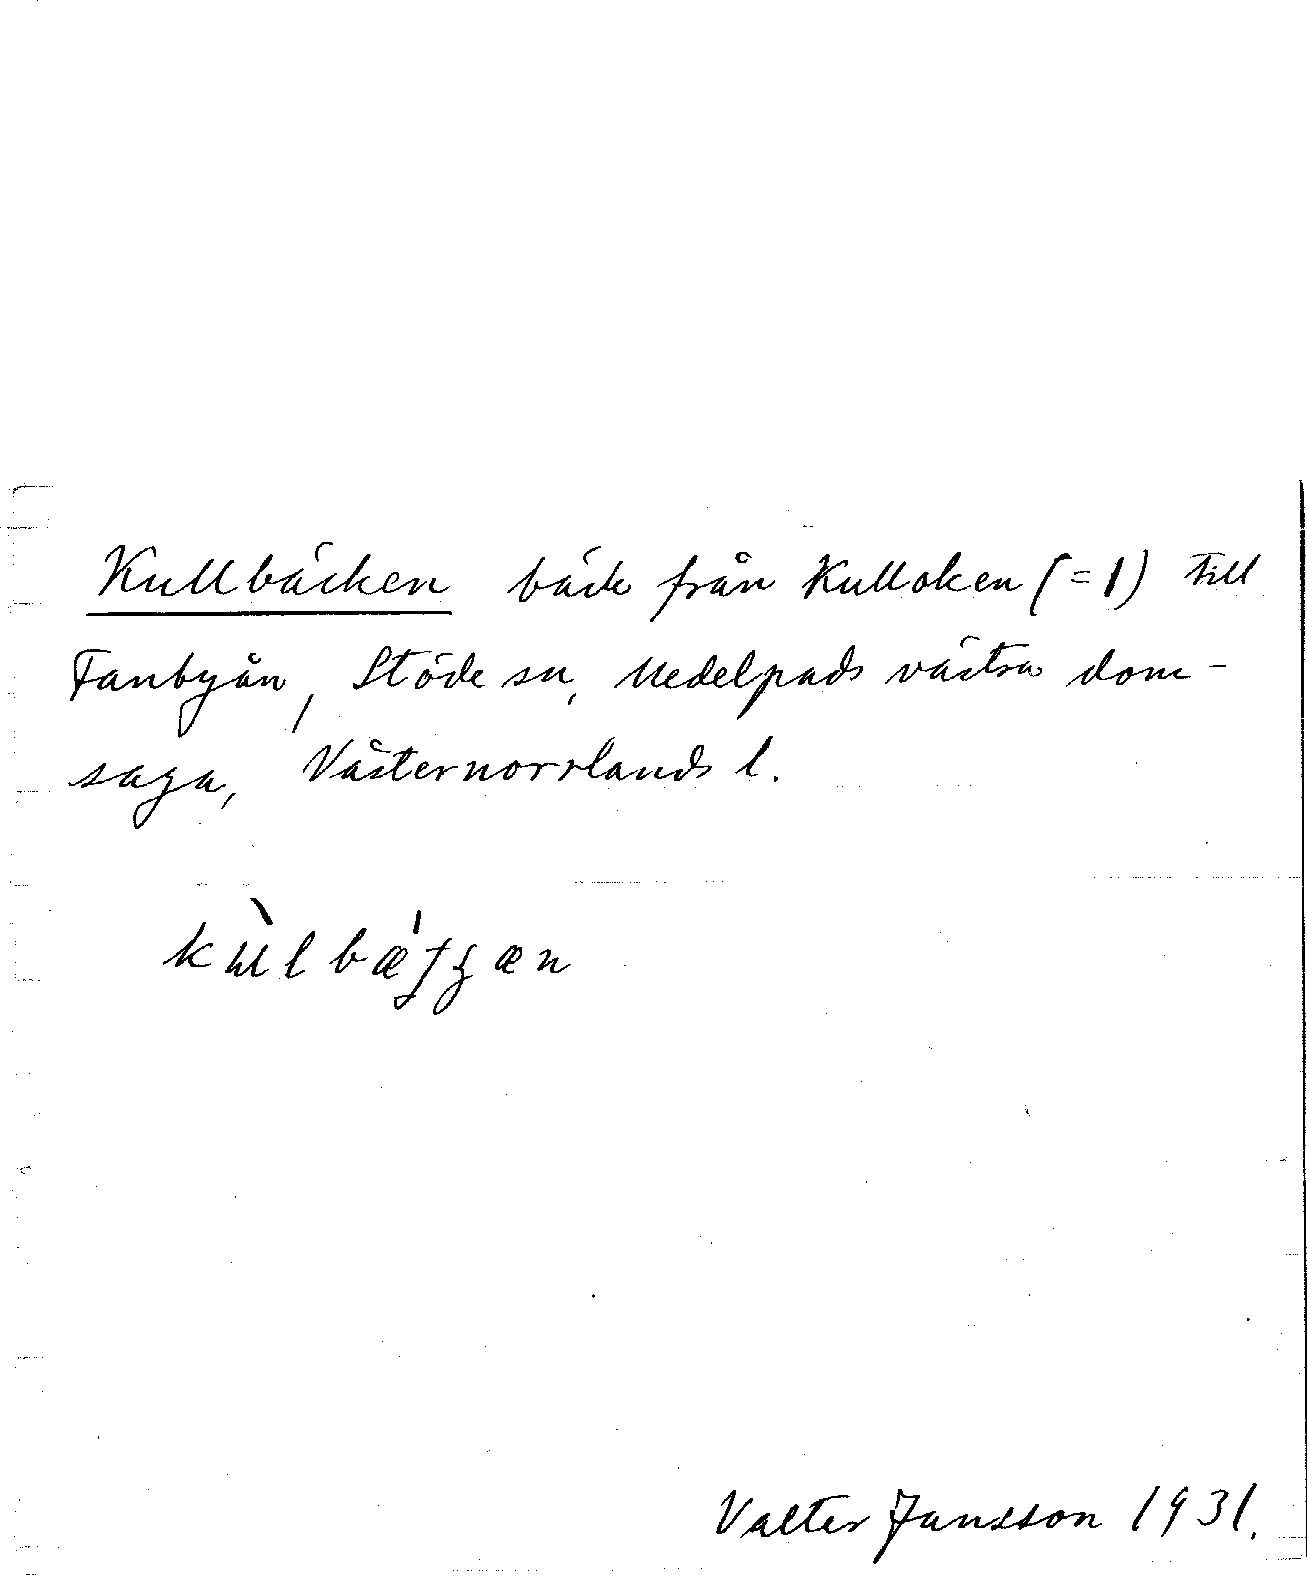 Kullbäcken bäck från Kulloken (=1) till
Fanbyån, Stöde sn, Medelpads västra dom-
saga, Västernorrlands l.
Valter Jansson 1931.